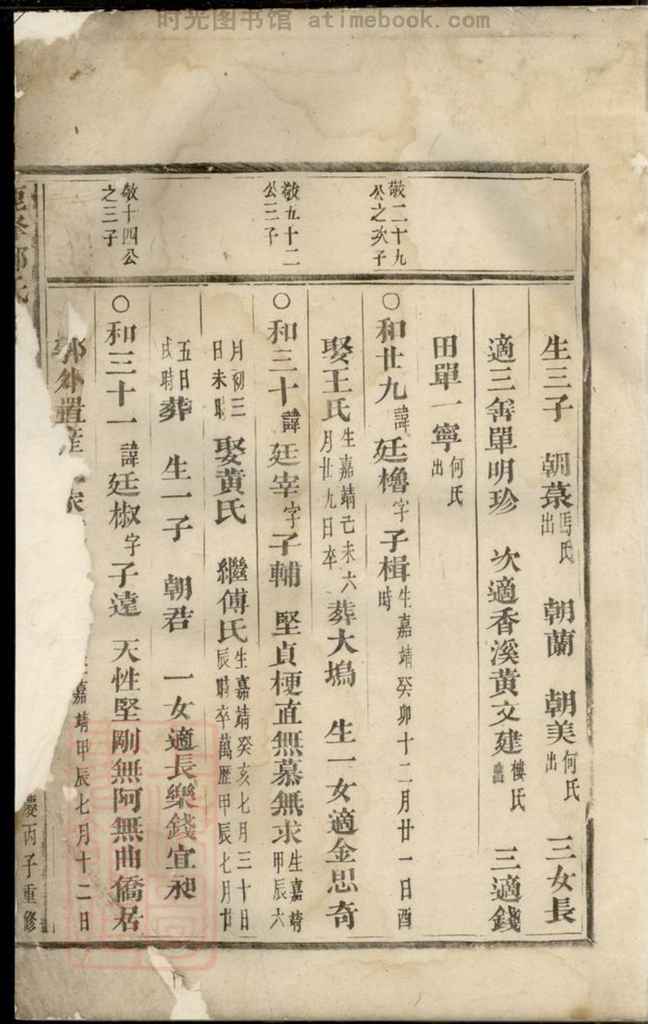 时光图书馆 atimebook.com
生三子 朝菉馮氏出 朝蘭 朝美何氏出 三女長
適三舍單明珍 次適香溪黃文建樓氏出 三適錢
田單一寧何氏出
敬二十九公之次子
○和廿九諱廷櫓字子楫生嘉靖癸卯十二月廿一日酉時
娶王氏生嘉靖己未六月廿九日卒 葬大塢 生一女適金思奇
敬五十二公三子
○和三十諱廷宰字子輔 堅貞梗直無慕無求生嘉靖甲辰六
月初三日未時 娶黃氏 繼傅氏生嘉靖癸亥七月三十日辰時卒萬曆甲辰七月廿
五日戌時葬 生一子 朝君 一女適長樂錢宜昶
敬十四公之三子
○和三十一諱廷椒字子遠 天性堅剛無阿無曲僑居
郭外置產 嘉靖甲辰七月十二日
慶丙子重修